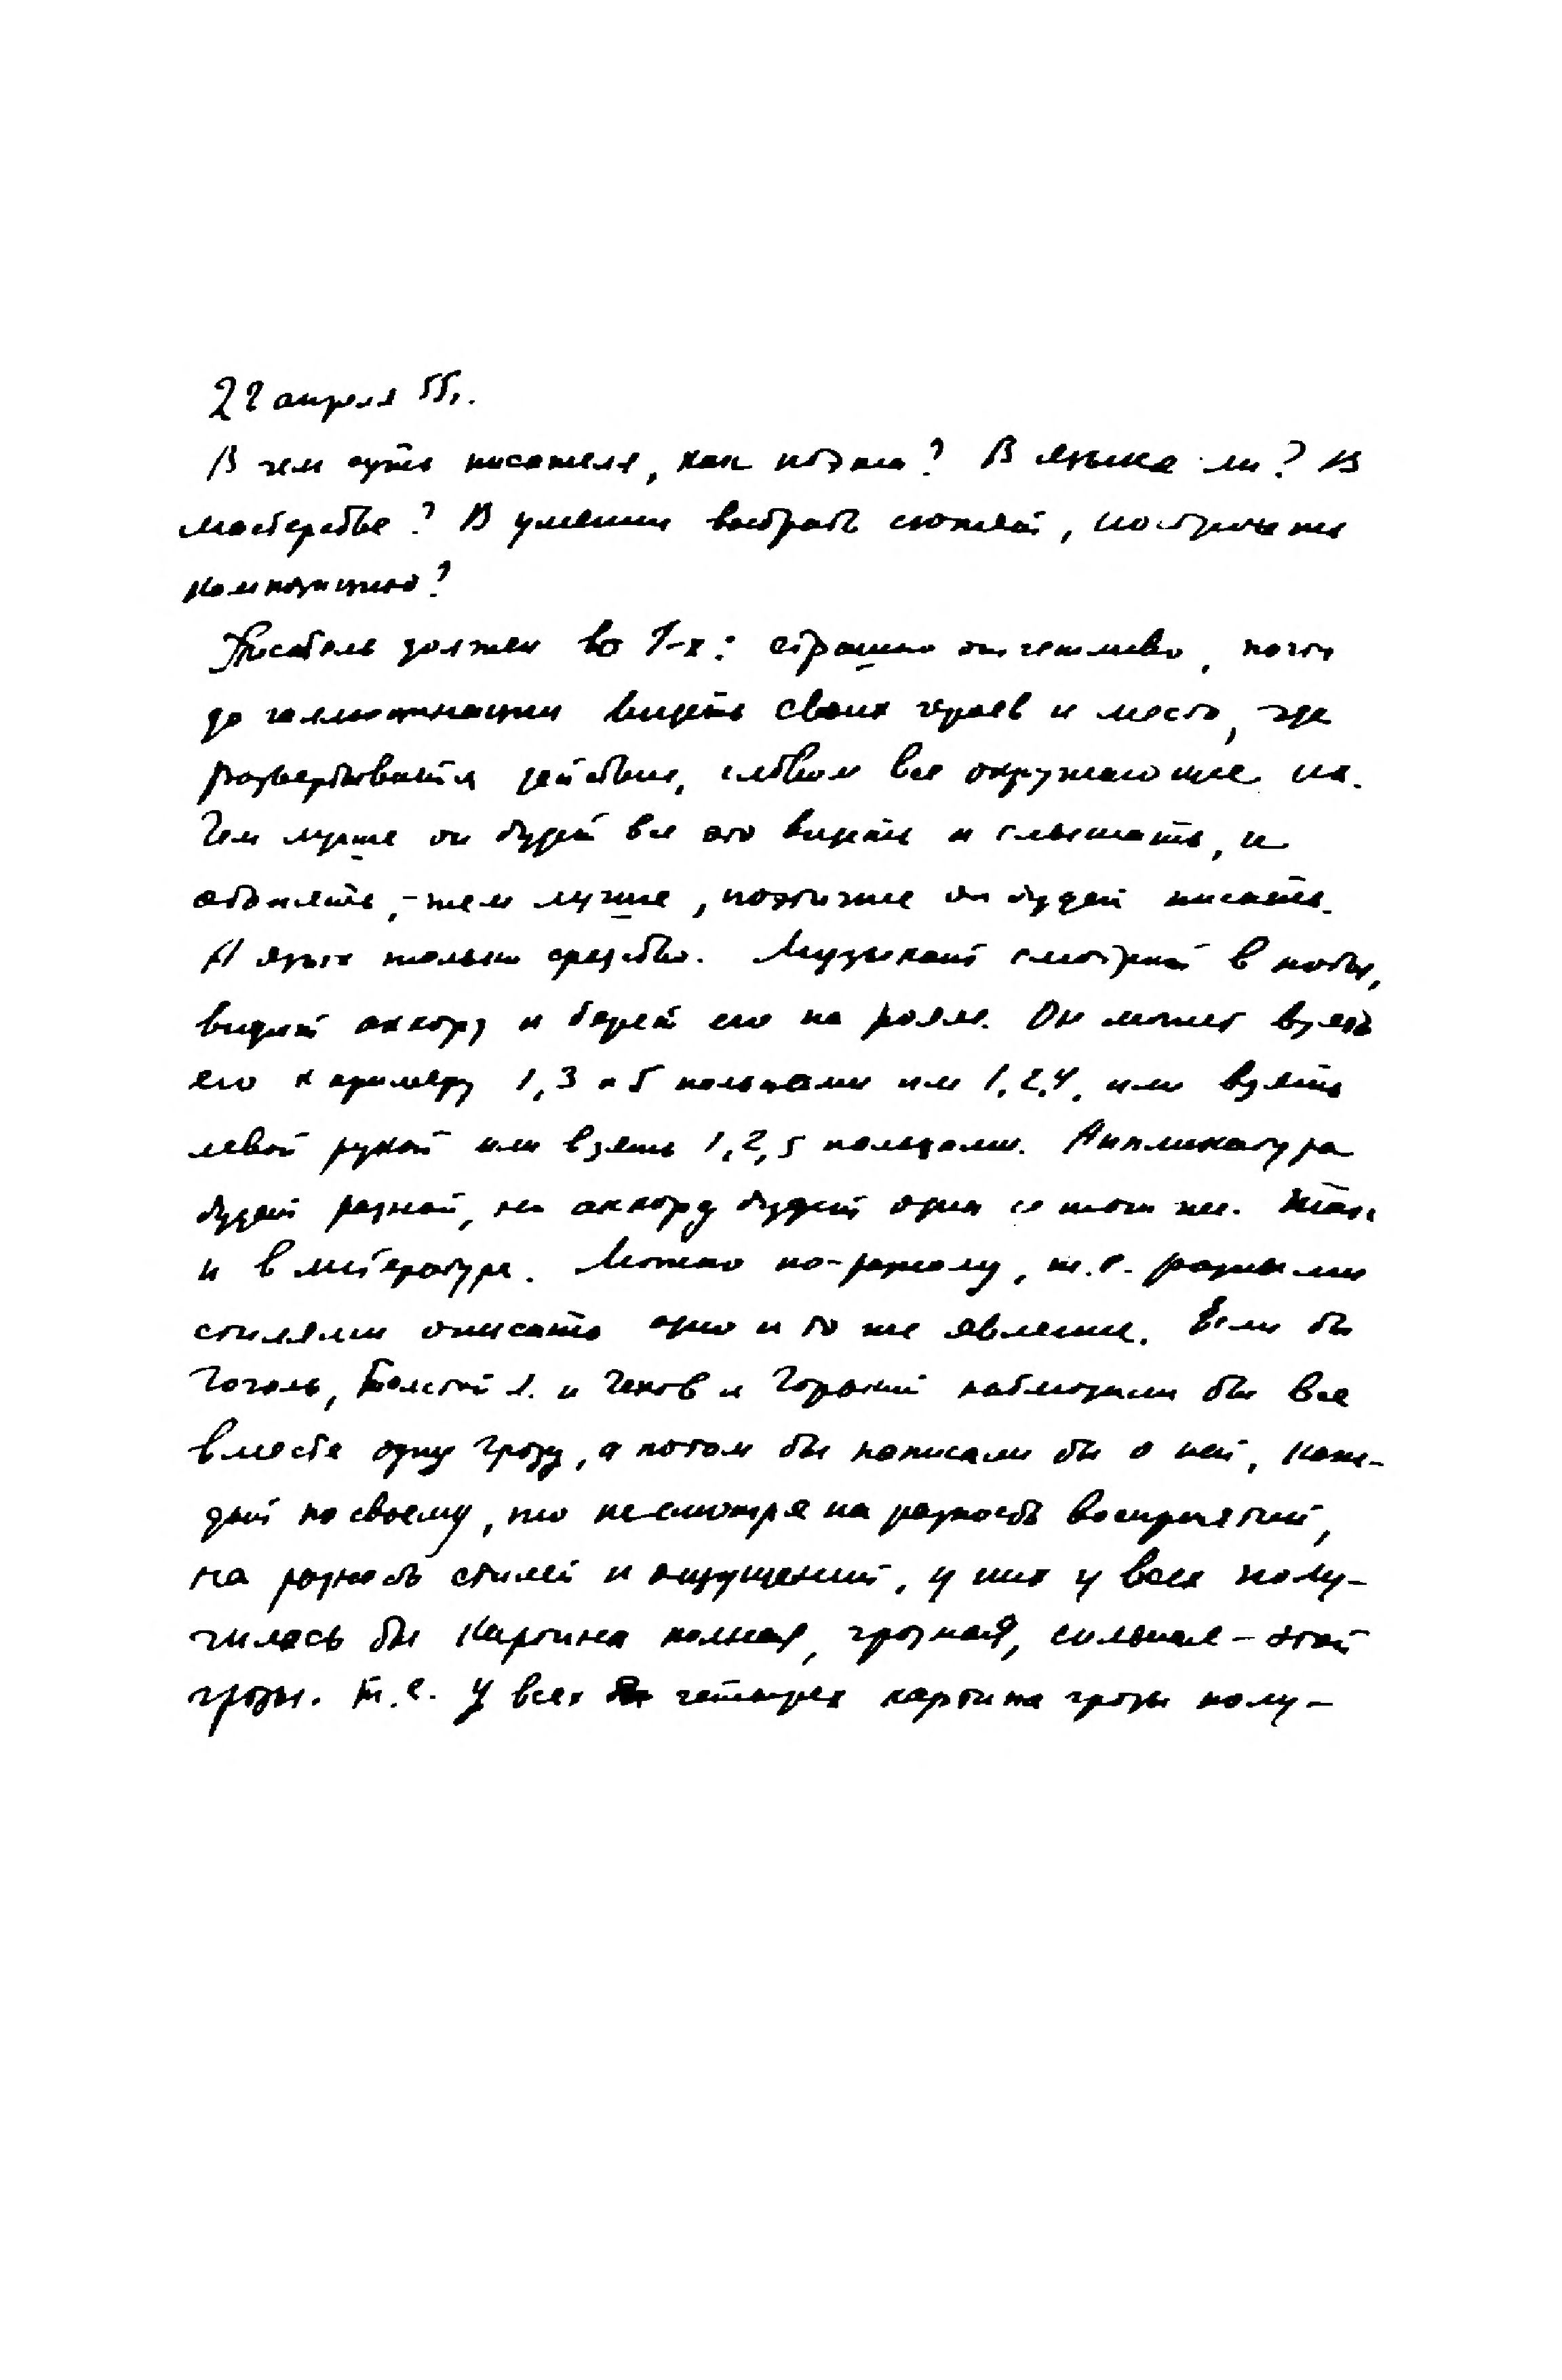 22 апреля 55г.
В чем суть писателя, как поэта? В языке ли? В
мастерстве? В умении выбрать сюжет, построить
композицию?
Писатель должен во 1-х: страшно отчетливо, почти
до галлюцинации видеть своих героев и место, где
развертывается действие, словом все окружающее их.
Чем лучше он будет все это видеть и слышать, и
обонять, - тем лучше, поэтичнее он будет писать.
А язык только средство. Музыкант смотрит в ноты,
видит аккорд и берет его на рояле. Он может взять
его к примеру 1, 3 и 5 пальцами или 1, 2, 4, или взять
левой рукой или взять 1, 2, 5 пальцами. Аппликатура
будет разной, но аккорд будет один и тот же. Так
и в литературе. Можно по-разному, т.е. разными
стилями описать одно и то же явление. Если бы
Гоголь, Толстой Л. и Чехов и Горький наблюдали бы все
вместе одну грозу, а потом бы написали бы о ней, каж-
дый по своему, то несмотря на разность восприятий,
на разность стилей и ощущений, у них у всех полу-
чилась бы картина полная, грозная, сильная - этой
грозы. Т.е. у всех четырех картина грозы полу-